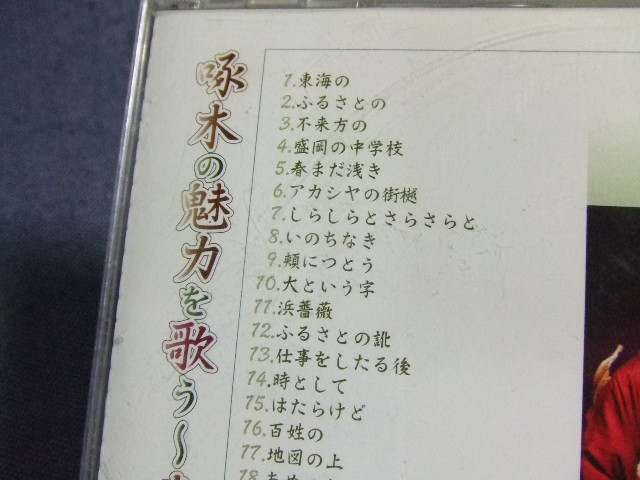 啄木の魅力を歌う～
1.東海の
2.ふるさとの
3.不来方の
4.盛岡の中学校
5.春まだ浅き
6.アカシヤの街樾
7.しらしらとさらさらと
8.いのちなき
9.頬につとう
10.大という字
11.浜薔薇
12.ふるさとの訛
13.仕事をしたる後
14.時として
15.はたらけど
16.百姓の
17.地図の上
18.